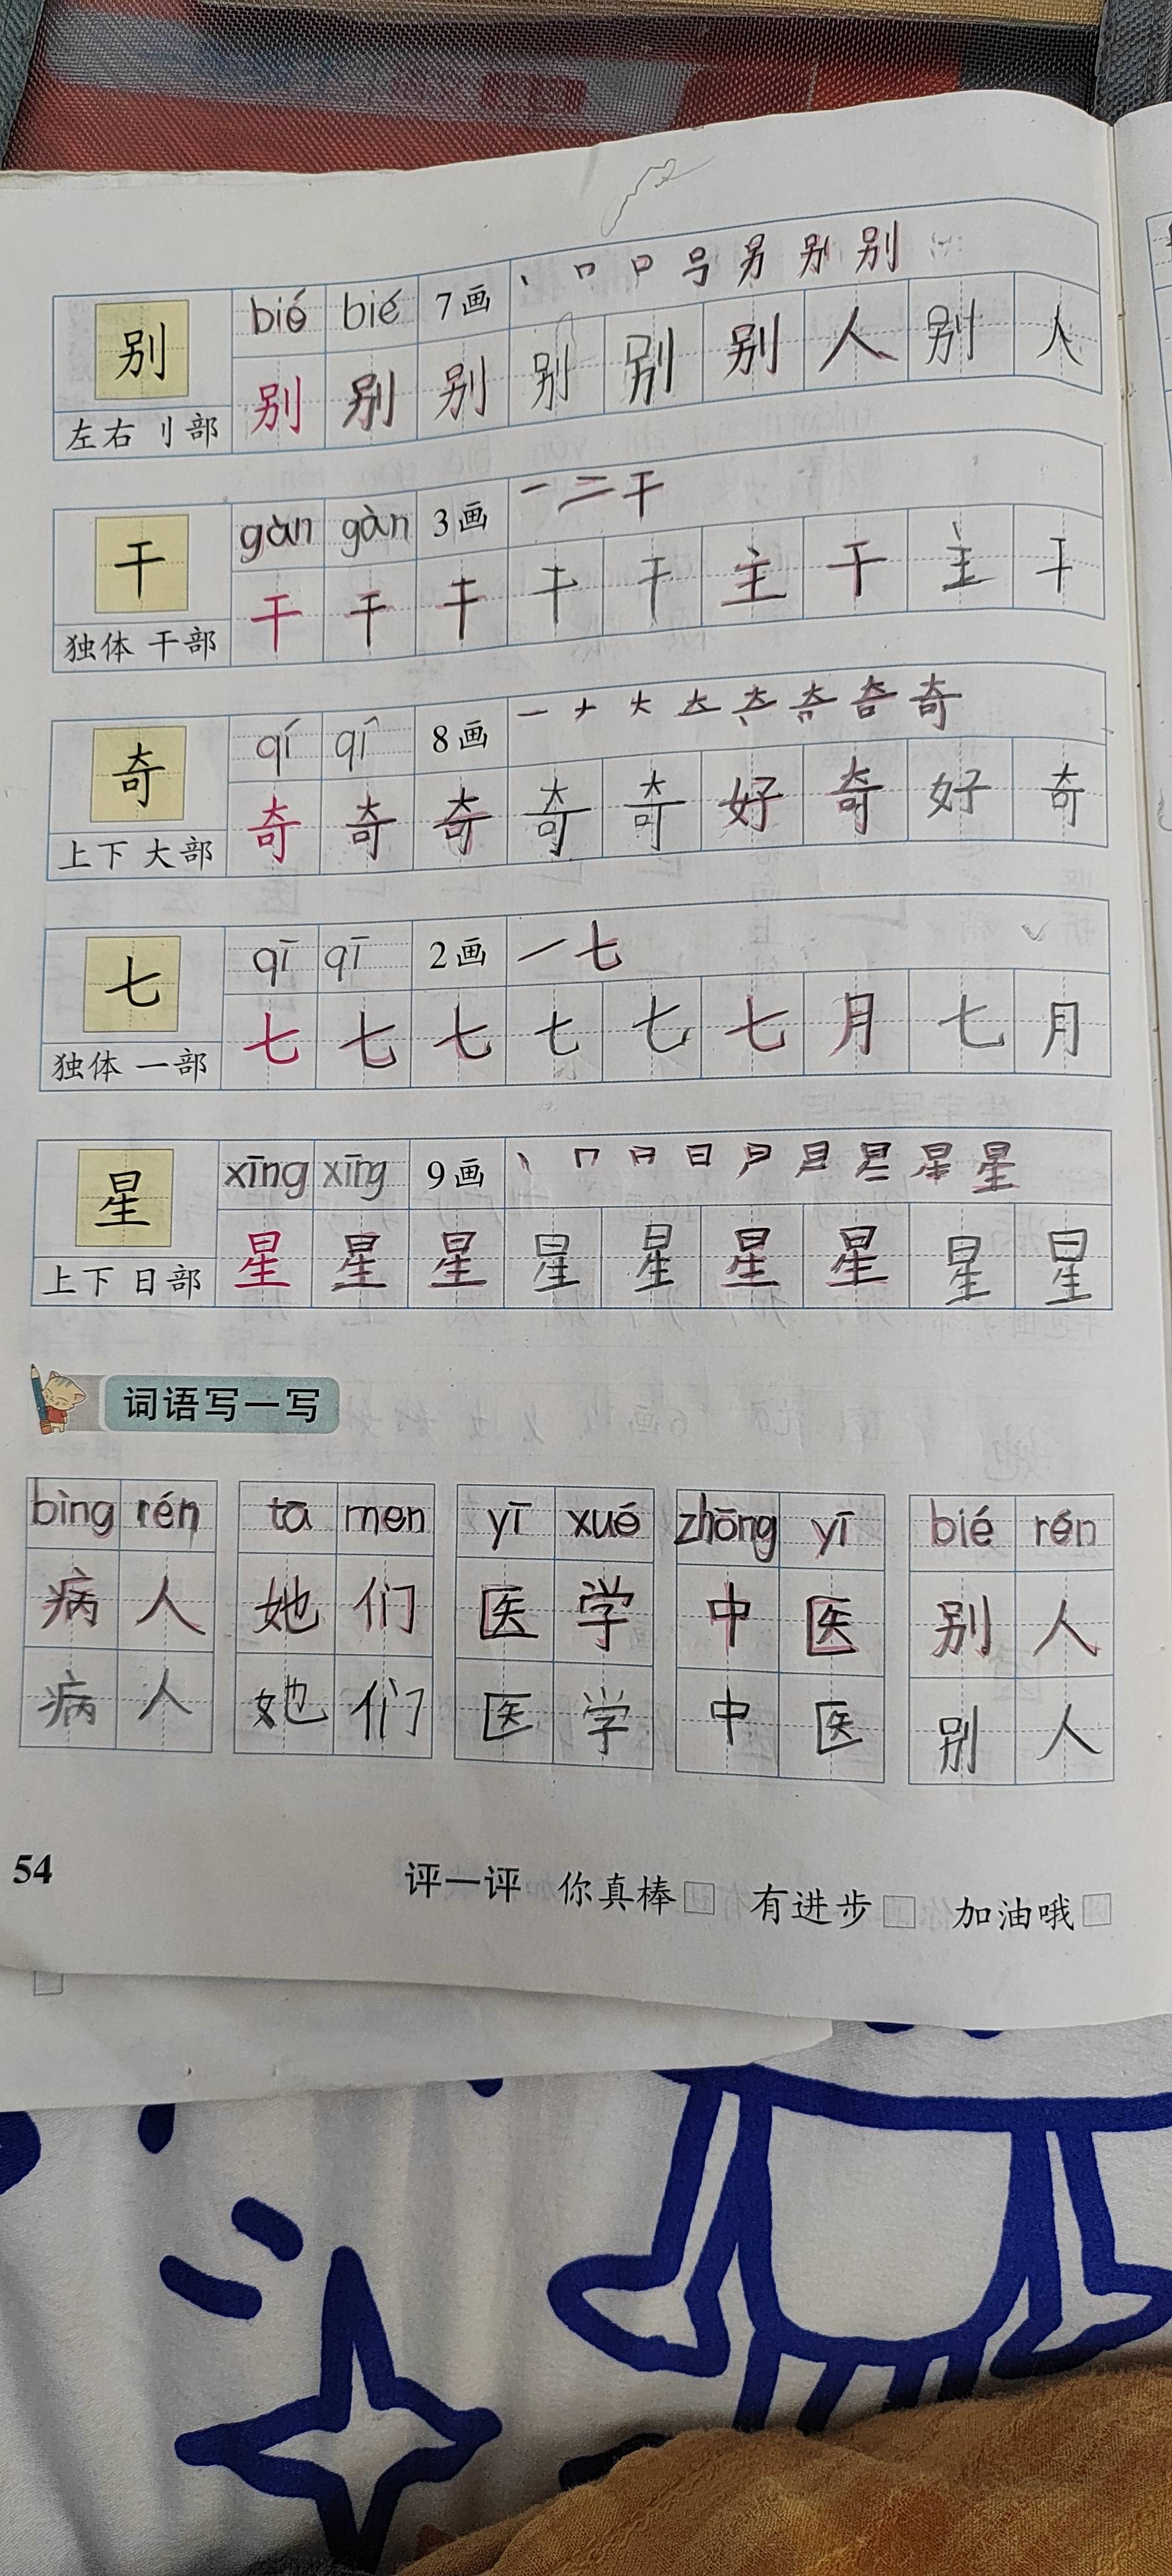 别 bié bié 7画 丶 口 口 号 另 别 别
左右 刂部 别 别 别 别 别 别 人 别 人
干 gàn gàn 3画 一 二 干
独体 干部 干 干 干 干 干 主 干 主 干
奇 qí qí 8画 一 ナ 大 奇
上下 大部 奇 奇 奇 奇 奇 好 奇 好 奇
七 qī qī 2画 一 七
独体 一部 七 七 七 七 七 七 月 七 月
星 xīng xīng 9画 日 星
上下 日部 星 星 星 星 星 星 星 星 星
词语写一写
bìng rén tā men yī xué zhōng yī bié rén
病 人 她 们 医 学 中 医 别 人
病 人 她 们 医 学 中 医 别 人
54 评一评 你真棒 有进步 加油哦